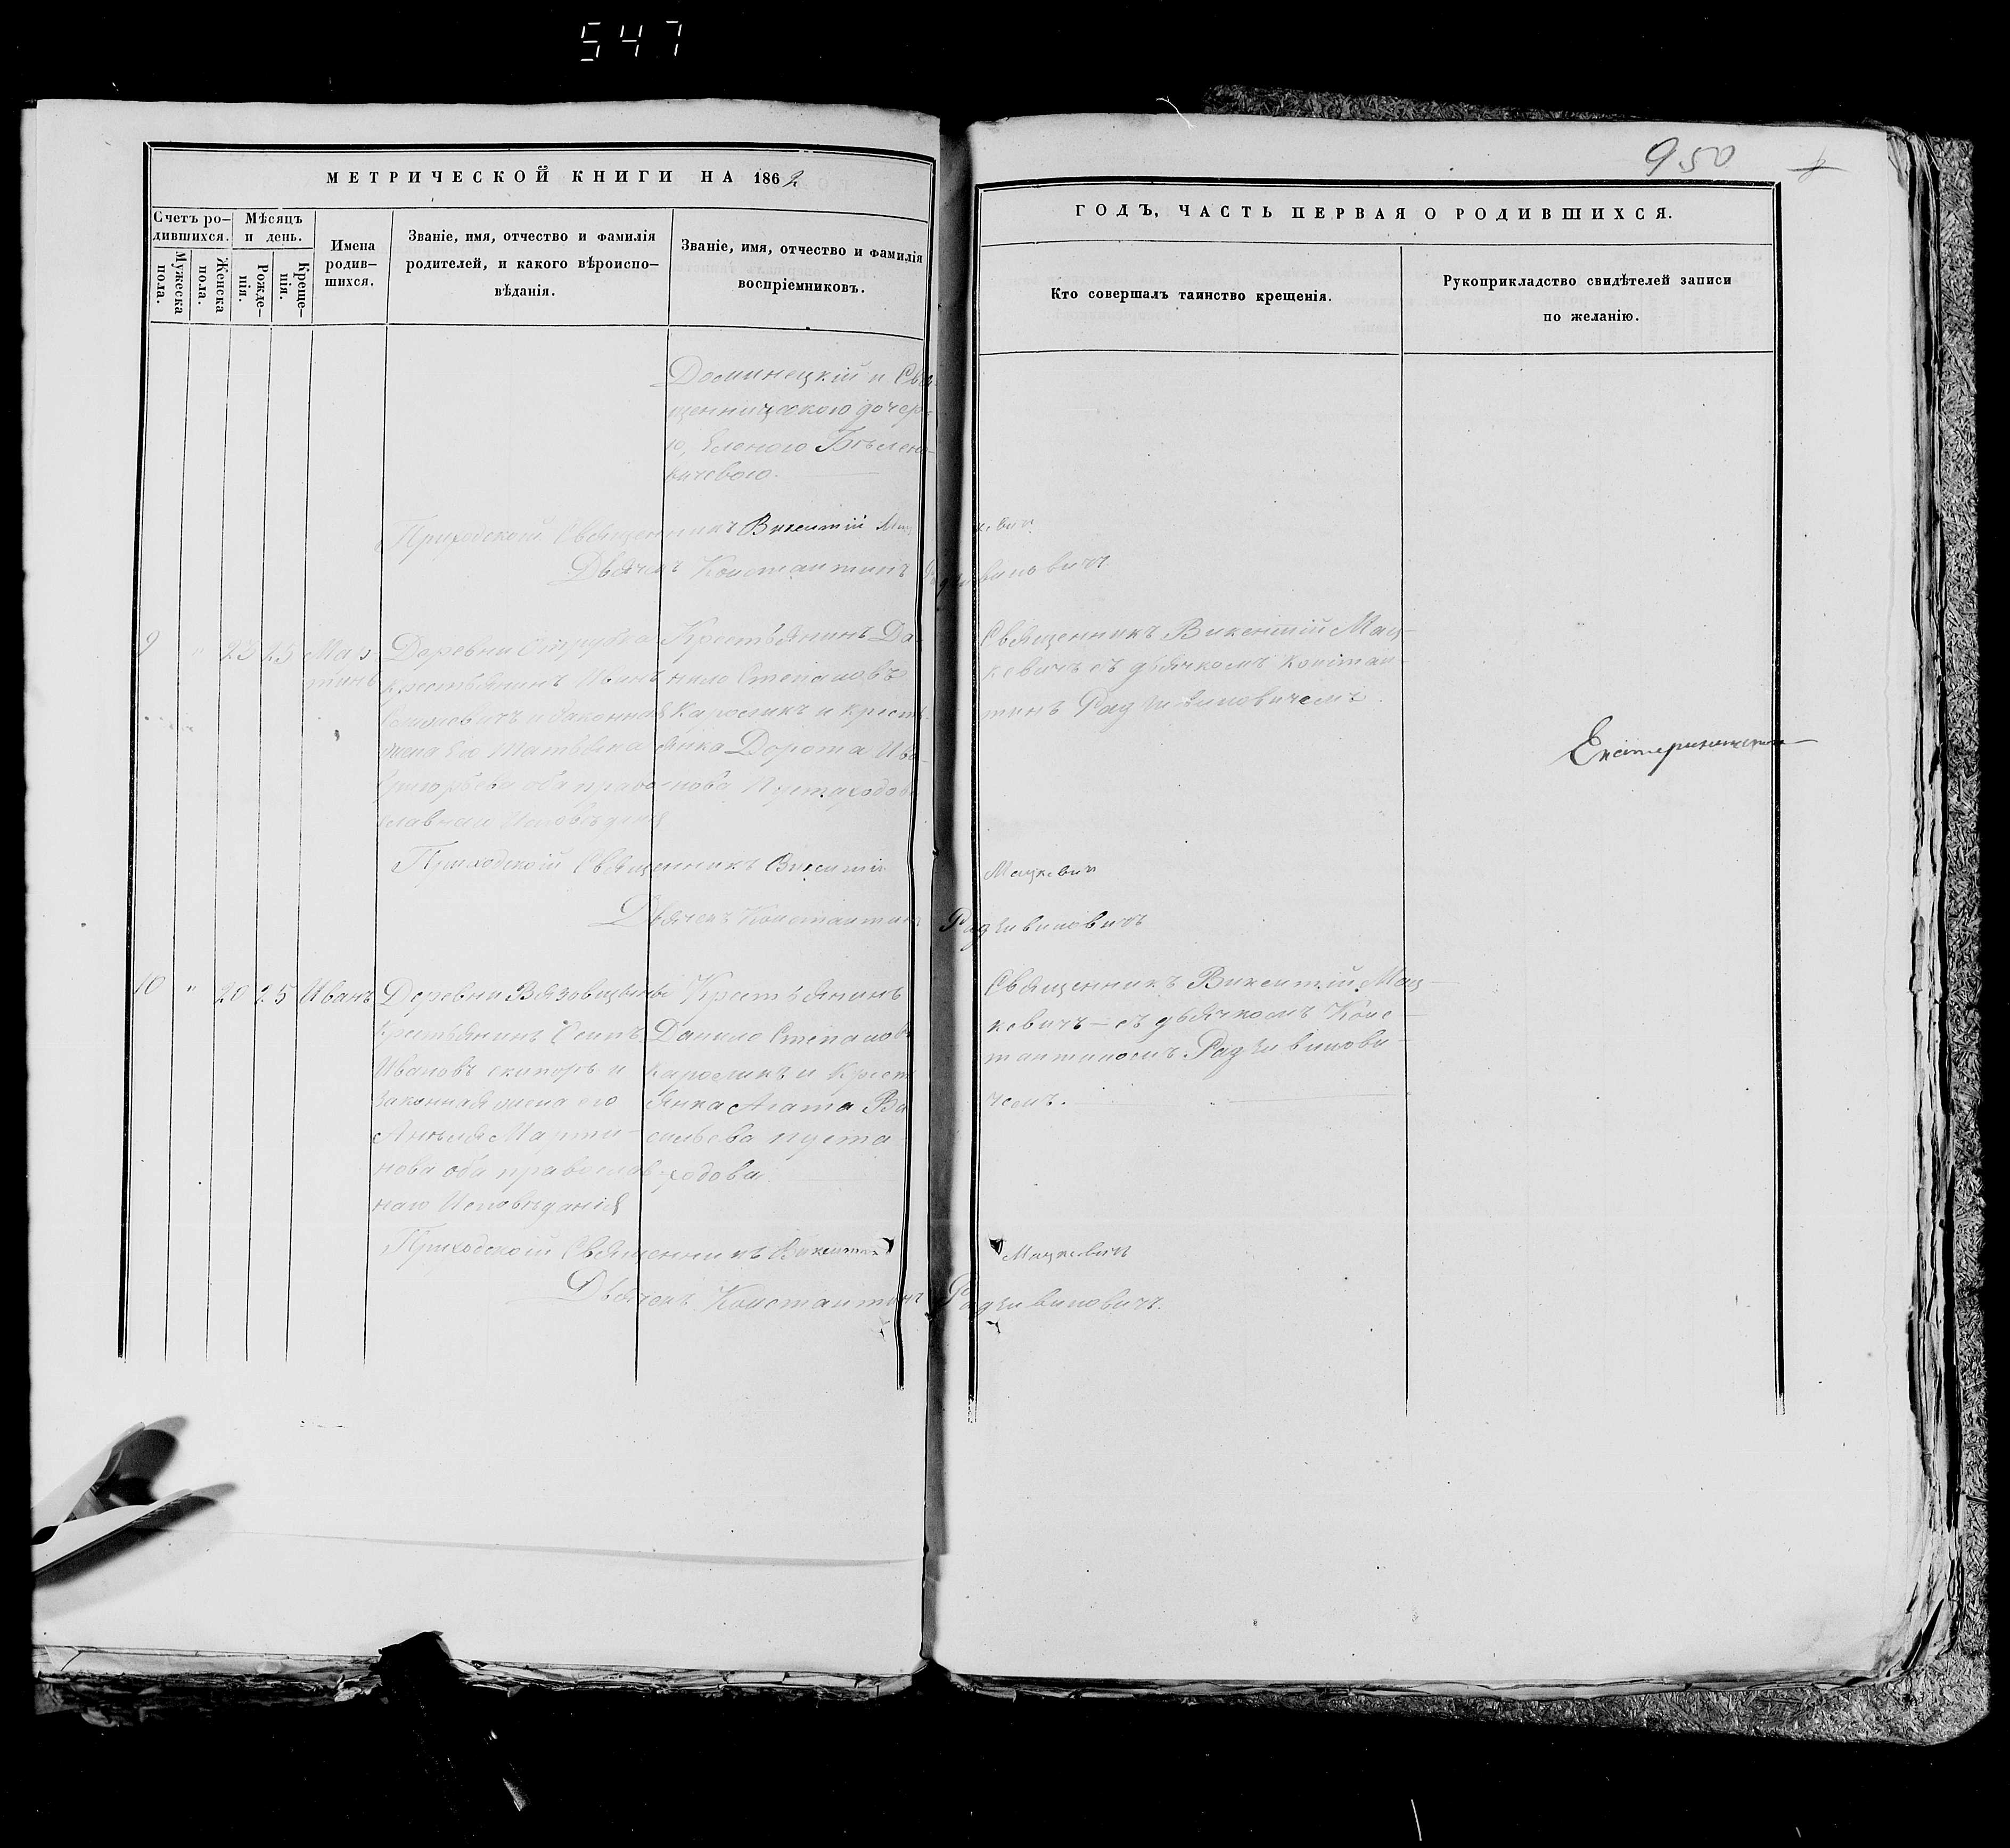 547
950
МЕТРИЧЕСКОЙ КНИГИ НА 1862
Счетъ ро-
дившихся.
Мѣсяцъ
и день.
Мужеска
пола.
Женска
пола.
Рожде-
нія.
Креще-
нія.
Имена
родив-
шихся.
Званіе, имя, отчество и фамилія
родителей, и какого вѣроиспо-
вѣданія.
Званіе, имя, отчество и фамилія
воспріемниковъ.
ГОДЪ, ЧАСТЬ ПЕРВАЯ О РОДИВШИХСЯ.
Кто совершалъ таинство крещенія.
Рукоприкладство свидѣтелей записи
по желанію.
Доминецкій и Свя-
щенническою дочер-
ю, Еленою
вичевою.
Приходскій Священникъ Викентій
Дьячекъ Константинъ
9 " 23 25 Мар-
тинъ
Деревни
крестьянинъ Иванъ
и законная
жена его
Григорьева оба право-
славнаго Исповѣданія
Крестьянинъ Да-
нило Степановъ
Кароликъ и крест-
янка Дорота Ива-
нова Пустаходов
Священникъ Викентій Мац-
кевичъ съ дьячкомъ Констан-
тинъ Радзивиновичемъ.
Приходскій Священникъ Викентій Мацкевич
Дьячекъ Константинъ Радзивиновичъ
10 " 20 25 Иванъ
Деревни
крестьянинъ Осипъ
Ивановъ и
законная жена его
Анеля Марти-
нова оба православ-
наго Исповѣданія
Крестьянинъ
Данило Степановъ
Кароликъ и Крест
янка Агата Ва
сильева пуста-
ходова.
Священникъ Викентій Мац-
кевичъ - съ дьячкомъ Конс-
тантиномъ Радзивинови-
чемъ.
Приходскій Священникъ Викентій Мацкевичъ
Дьячекъ Константинъ Радзивиновичъ.